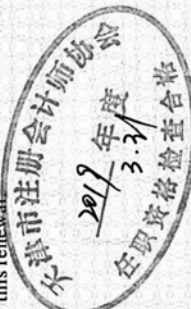 this renewal
天津市注册会计师协会
2019 年度
3.31
任职资格检查合格